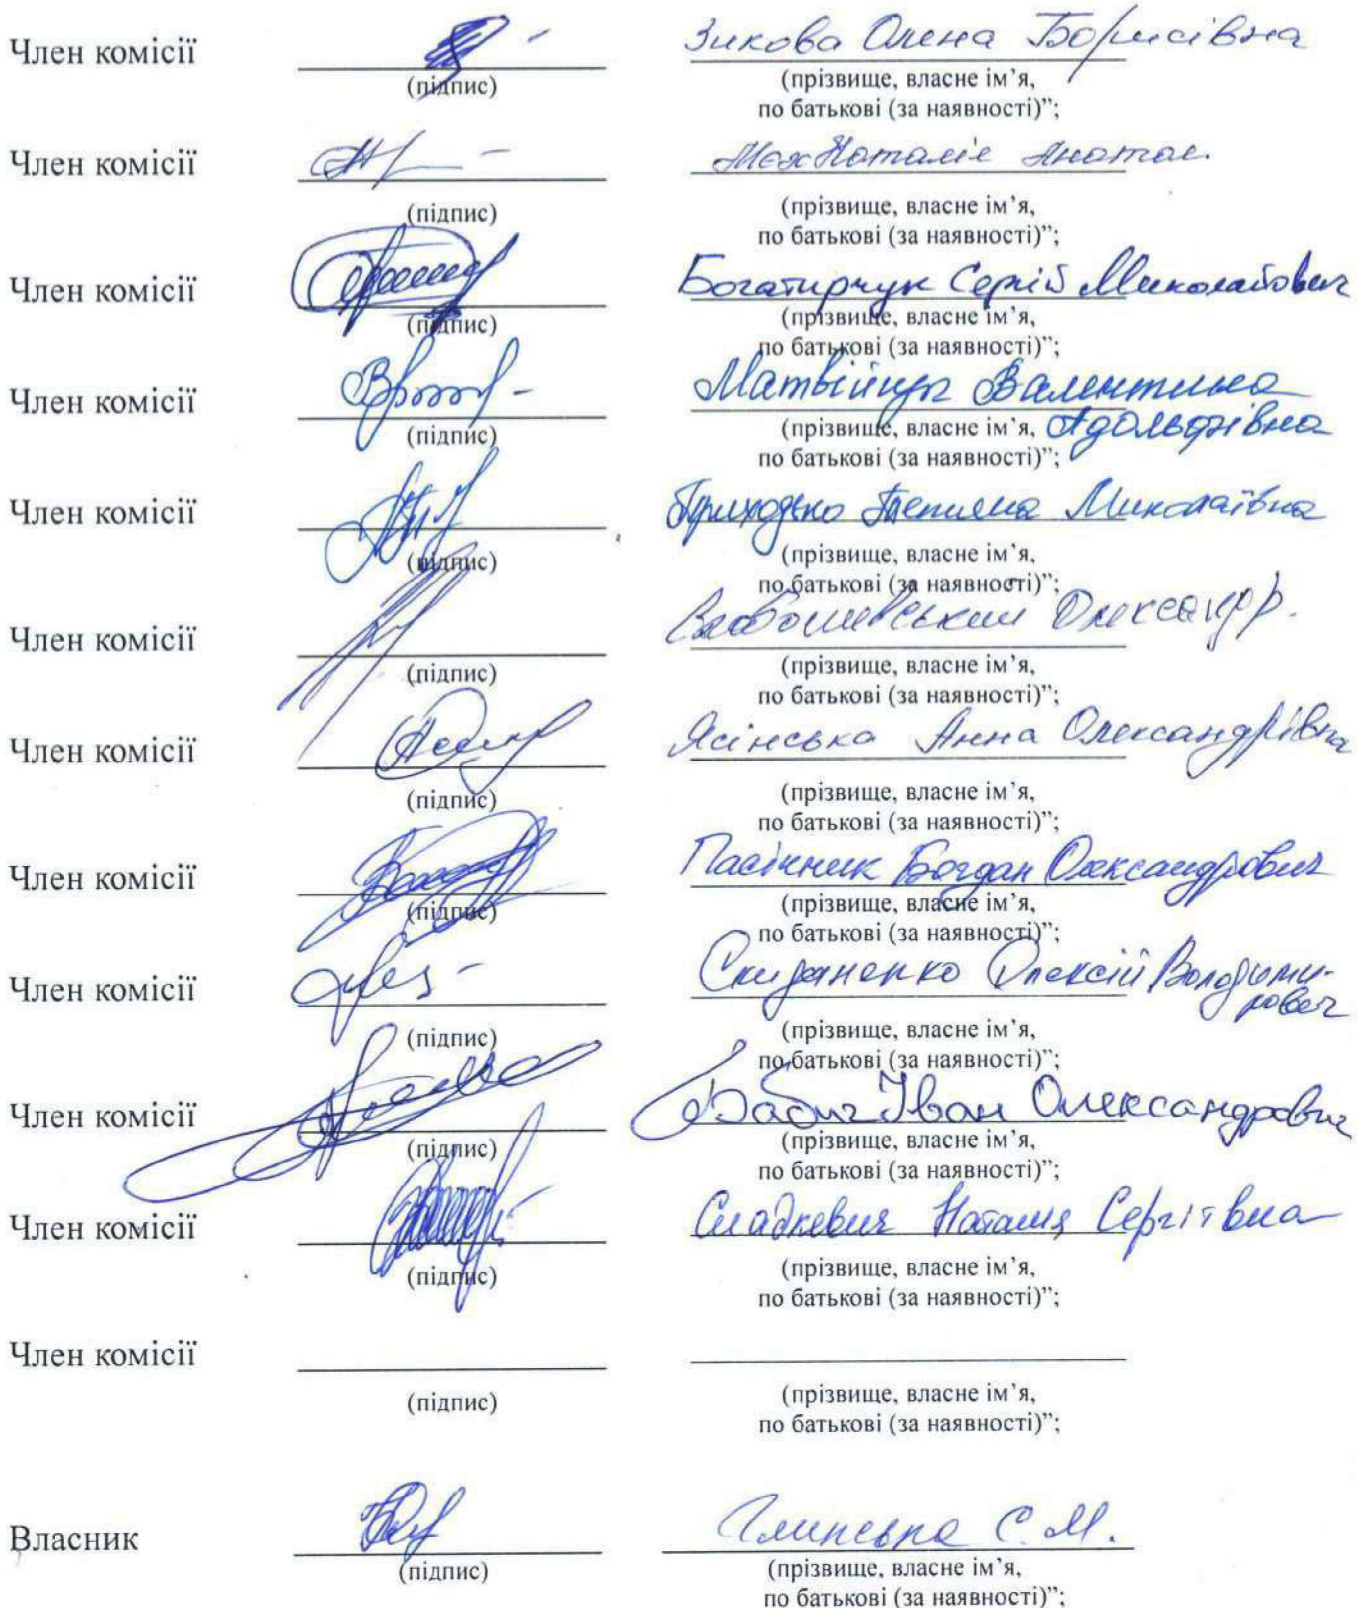 Член комісії Зикова Олена Борисівна
(підпис) (прізвище, власне ім’я,
по батькові (за наявності)”;
Член комісії Мех Наталія Анатол.
(підпис) (прізвище, власне ім’я,
по батькові (за наявності)”;
Член комісії Богатирчук Сергій Миколайович
(підпис) (прізвище, власне ім’я,
по батькові (за наявності)”;
Член комісії Матвійчук Валентина
(підпис) (прізвище, власне ім’я, Адольфівна
по батькові (за наявності)”;
Член комісії Приходько Тетяна Миколаївна
(підпис) (прізвище, власне ім’я,
по батькові (за наявності)”;
Член комісії Олександр.
(підпис) (прізвище, власне ім’я,
по батькові (за наявності)”;
Член комісії Ясінська Анна Олександрівна
(підпис) (прізвище, власне ім’я,
по батькові (за наявності)”;
Член комісії Пасічник Богдан Олександрович
(підпис) (прізвище, власне ім’я,
по батькові (за наявності)”;
Член комісії Скиданенко Олексій Володими-
рович
(підпис) (прізвище, власне ім’я,
по батькові (за наявності)”;
Член комісії Бабич Іван Олександрович
(підпис) (прізвище, власне ім’я,
по батькові (за наявності)”;
Член комісії Сладкевич Наталія Сергіївна
(підпис) (прізвище, власне ім’я,
по батькові (за наявності)”;
Член комісії
(підпис) (прізвище, власне ім’я,
по батькові (за наявності)”;
Власник Глинська С.М.
(підпис) (прізвище, власне ім’я,
по батькові (за наявності)”;